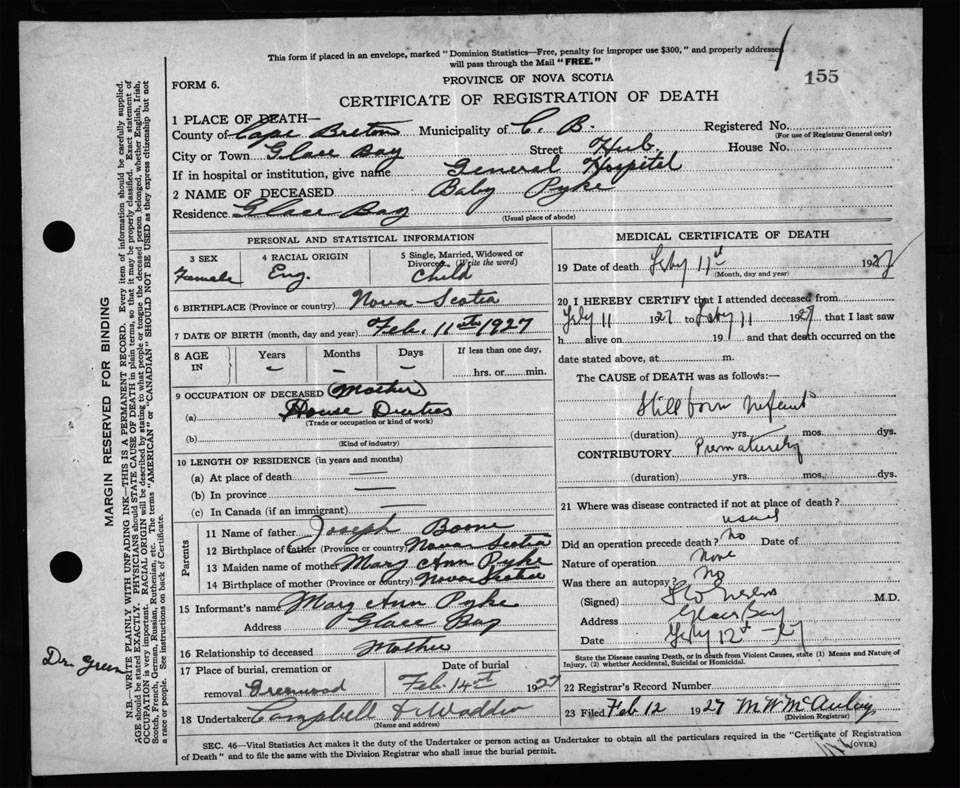 This form if placed in an envelope, marked "Dominion Statistics—Free, penalty for improper use $300," and properly addressed
will pass through the Mail "FREE."
155
FORM 6.
PROVINCE OF NOVA SCOTIA
CERTIFICATE OF REGISTRATION OF DEATH
1 PLACE OF DEATH—
County of Cape Breton Municipality of C. B. Registered No.
(For use of Registrar General only)
City or Town Glace Bay Street Hub House No.
If in hospital or institution, give name General Hospital
2 NAME OF DECEASED Baby Pyke
Residence Glace Bay
(Usual place of abode)
PERSONAL AND STATISTICAL INFORMATION
3 SEX 4 RACIAL ORIGIN 5 Single, Married, Widowed or
Divorced. (Write the word)
Female Eng. Child
6 BIRTHPLACE (Province or country) Nova Scotia
7 DATE OF BIRTH (month, day and year) Feb. 11th 1927
8 AGE IN Years Months Days If less than one day,
— — — hrs. or min.
9 OCCUPATION OF DECEASED (Mother)
(a) House Duties
(Trade or occupation or kind of work)
(b)
(Kind of industry)
10 LENGTH OF RESIDENCE (in years and months)
(a) At place of death —
(b) In province —
(c) In Canada (if an immigrant) —
Parents
11 Name of father Joseph Boone
12 Birthplace of father (Province or country) Nova Scotia
13 Maiden name of mother Mary Ann Pyke
14 Birthplace of mother (Province or country) Nova Scotia
15 Informant's name Mary Ann Pyke
Address Glace Bay
16 Relationship to deceased Mother
17 Place of burial, cremation or Date of burial
removal Greenwood Feb. 14th 1927
18 Undertaker Campbell &
(Name and address)
MEDICAL CERTIFICATE OF DEATH
19 Date of death Feby 11th 1927
(Month, day and year)
20 I HEREBY CERTIFY that I attended deceased from
Feby 11 1927 to Feby 11 1927 that I last saw
h alive on 191 and that death occurred on the
date stated above, at m.
The CAUSE of DEATH was as follows:—
Still born infant
(duration) yrs. mos. dys.
CONTRIBUTORY Prematurely
(duration) yrs. mos. dys.
21 Where was disease contracted if not at place of death?
usual
Did an operation precede death? No Date of
Nature of operation None
Was there an autopsy? No
(Signed) M.D.
Address Glace Bay
Date Feby 12th —27
State the Disease causing Death, or in death from Violent Causes, state (1) Means and Nature of
Injury, (2) whether Accidental, Suicidal or Homicidal.
22 Registrar's Record Number
23 Filed Feb 12 1927 M W McAulay
(Division Registrar)
SEC. 46—Vital Statistics Act makes it the duty of the Undertaker or person acting as Undertaker to obtain all the particulars required in the "Certificate of Registration
of Death" and to file the same with the Division Registrar who shall issue the burial permit.
(OVER)
MARGIN RESERVED FOR BINDING
N.B.—WRITE PLAINLY WITH UNFADING INK—THIS IS A PERMANENT RECORD. Every item of information should be carefully supplied.
AGE should be stated EXACTLY. PHYSICIANS should STATE CAUSE OF DEATH in plain terms, so that it may be properly classified. Exact statement of
OCCUPATION is very important. RACIAL ORIGIN will be described by stating to what people or tongue the deceased person belonged, whether English, Irish,
Scotch, French, German, Russian, Ruthenian, etc. The terms "AMERICAN" or "CANADIAN" SHOULD NOT BE USED as they express citizenship but not
a race or people. See instructions on back of Certificate.
Dr. Green